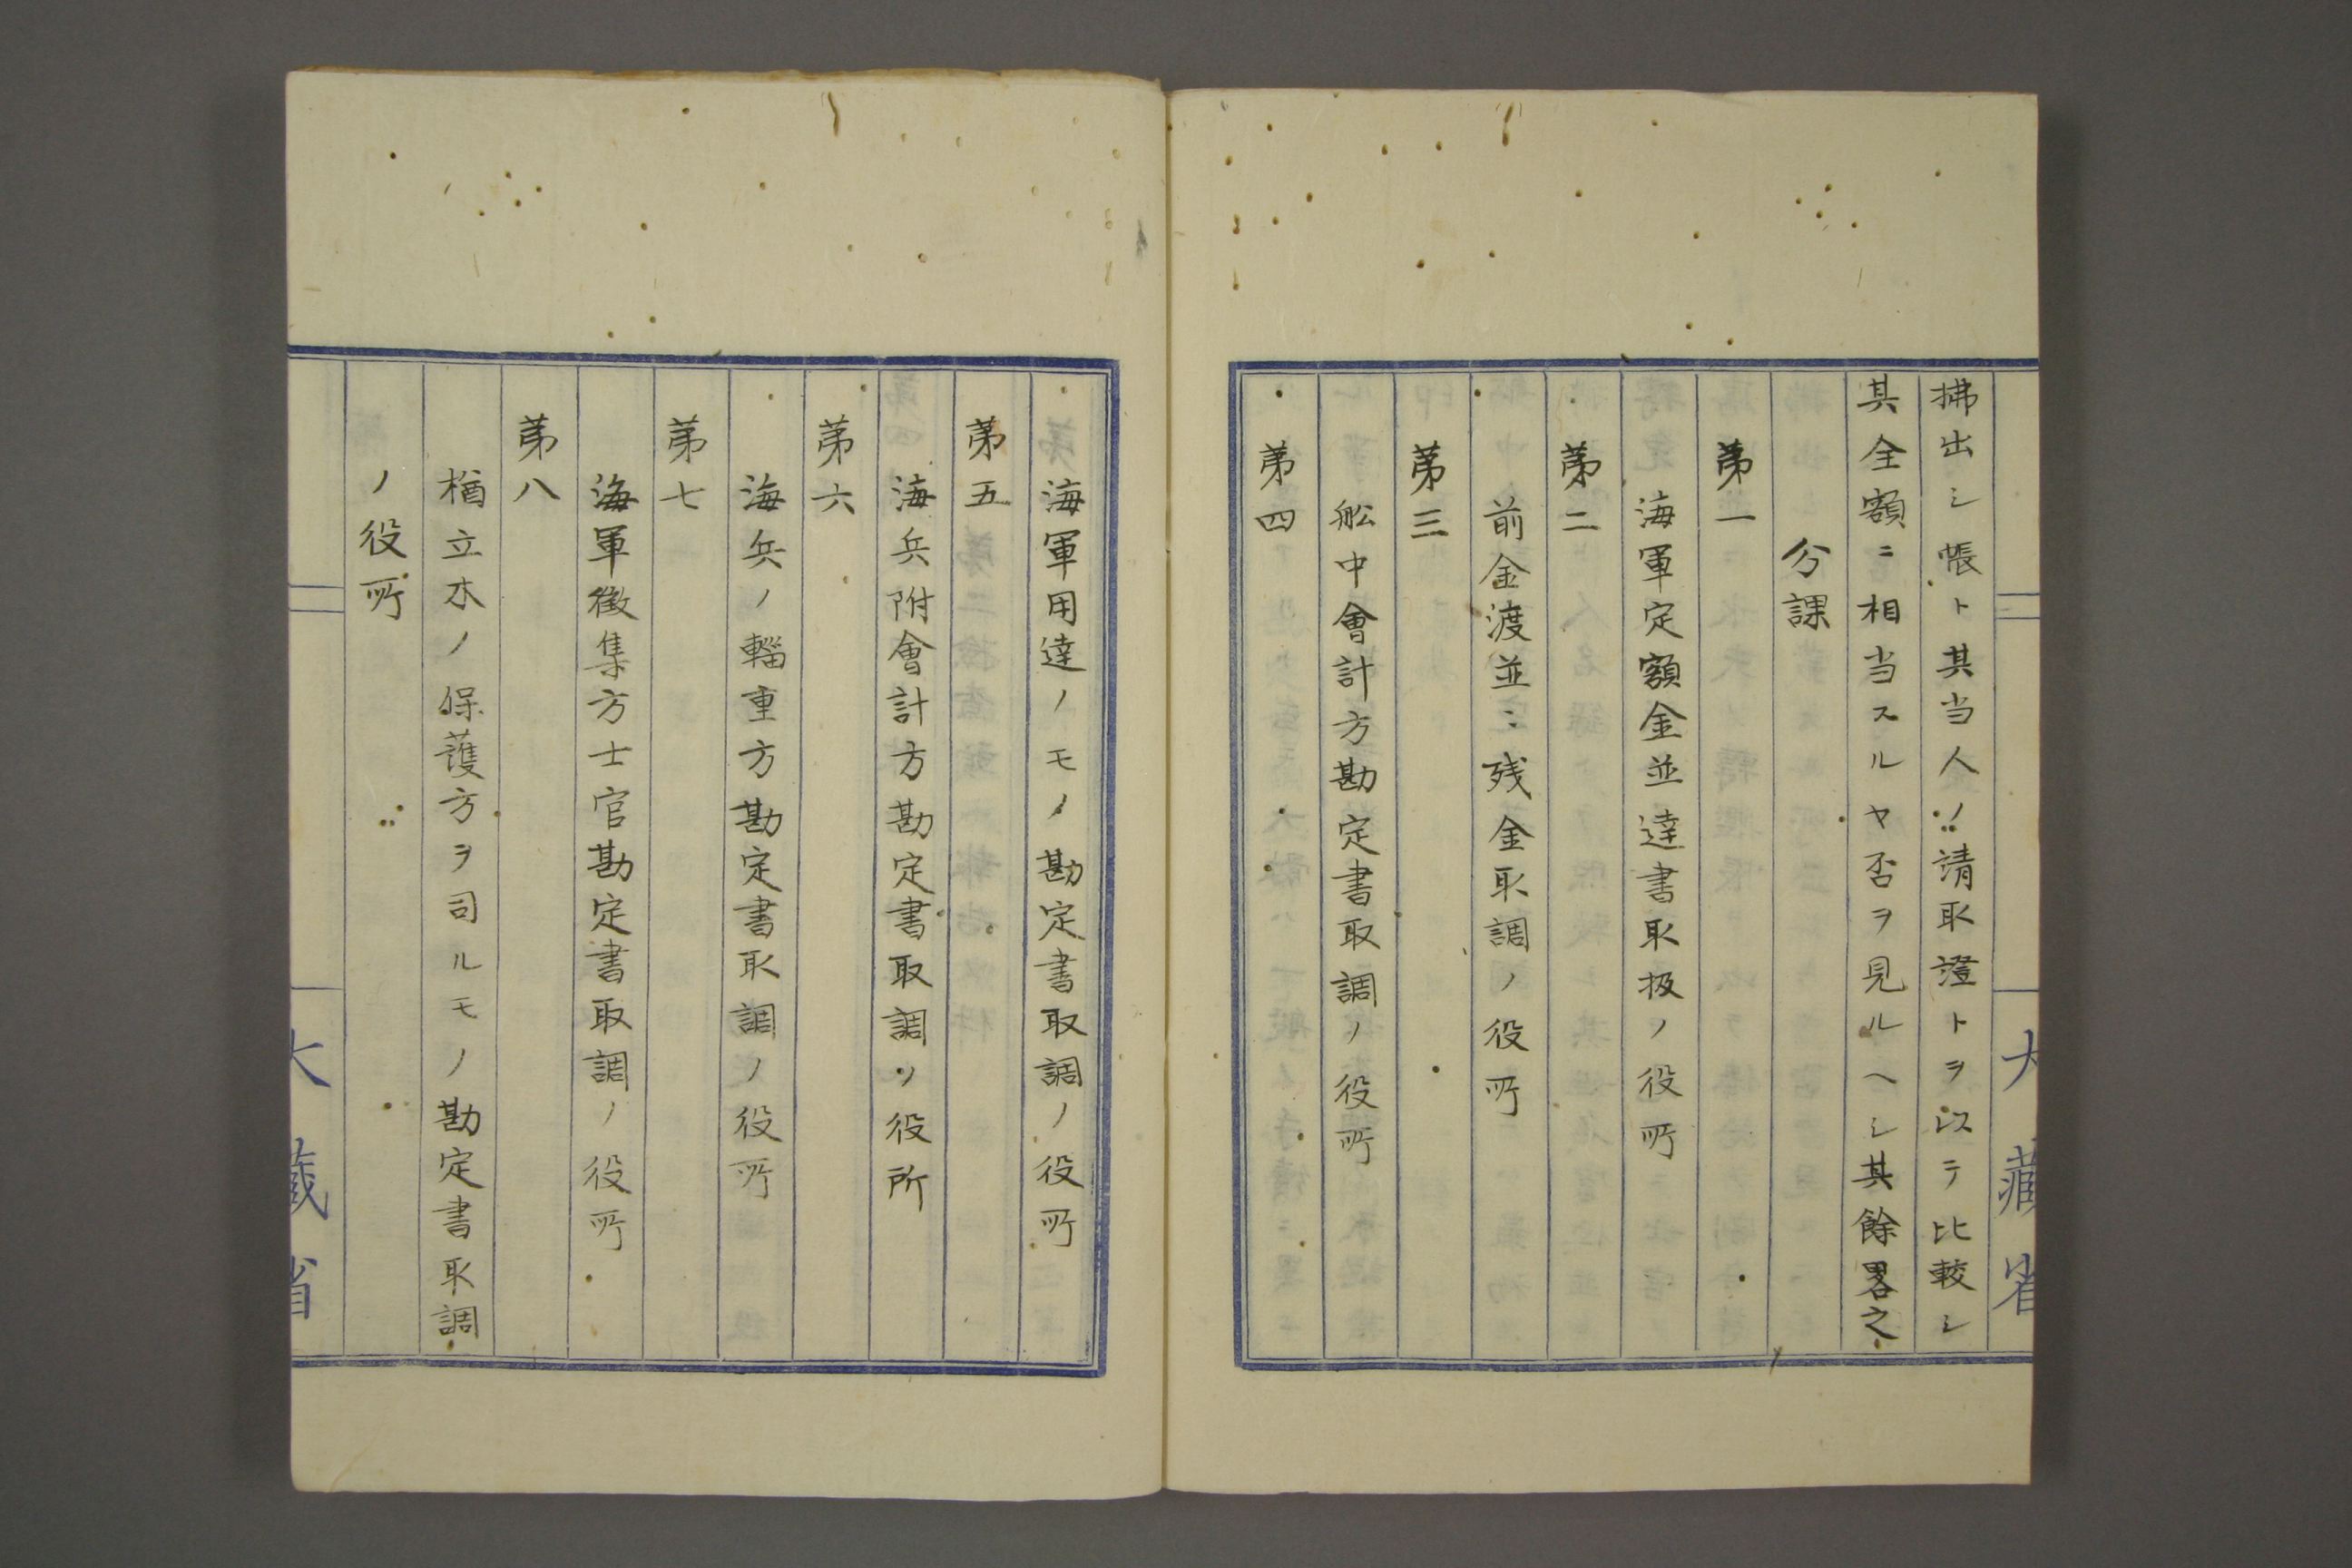 拂出シ帳ト其当人ノ請取證トヲ以テ比較シ
其全額ニ相当スルヤ否ヲ見ルヘシ其餘畧之
分課
第一
海軍定額金並達書取扱ノ役所
第二
前金渡並ニ残金取調ノ役所
第三
舩中會計方勘定書取調ノ役所
第四
海軍用達ノモノ勘定書取調ノ役所
第五
海兵附會計方勘定書取調ノ役所
第六
海兵ノ輜重方勘定書取調ノ役所
第七
海軍徴集方士官勘定書取調ノ役所
第八
楢立木ノ保護方ヲ司ルモノノ勘定書取調
ノ役所
大藏省
大藏省